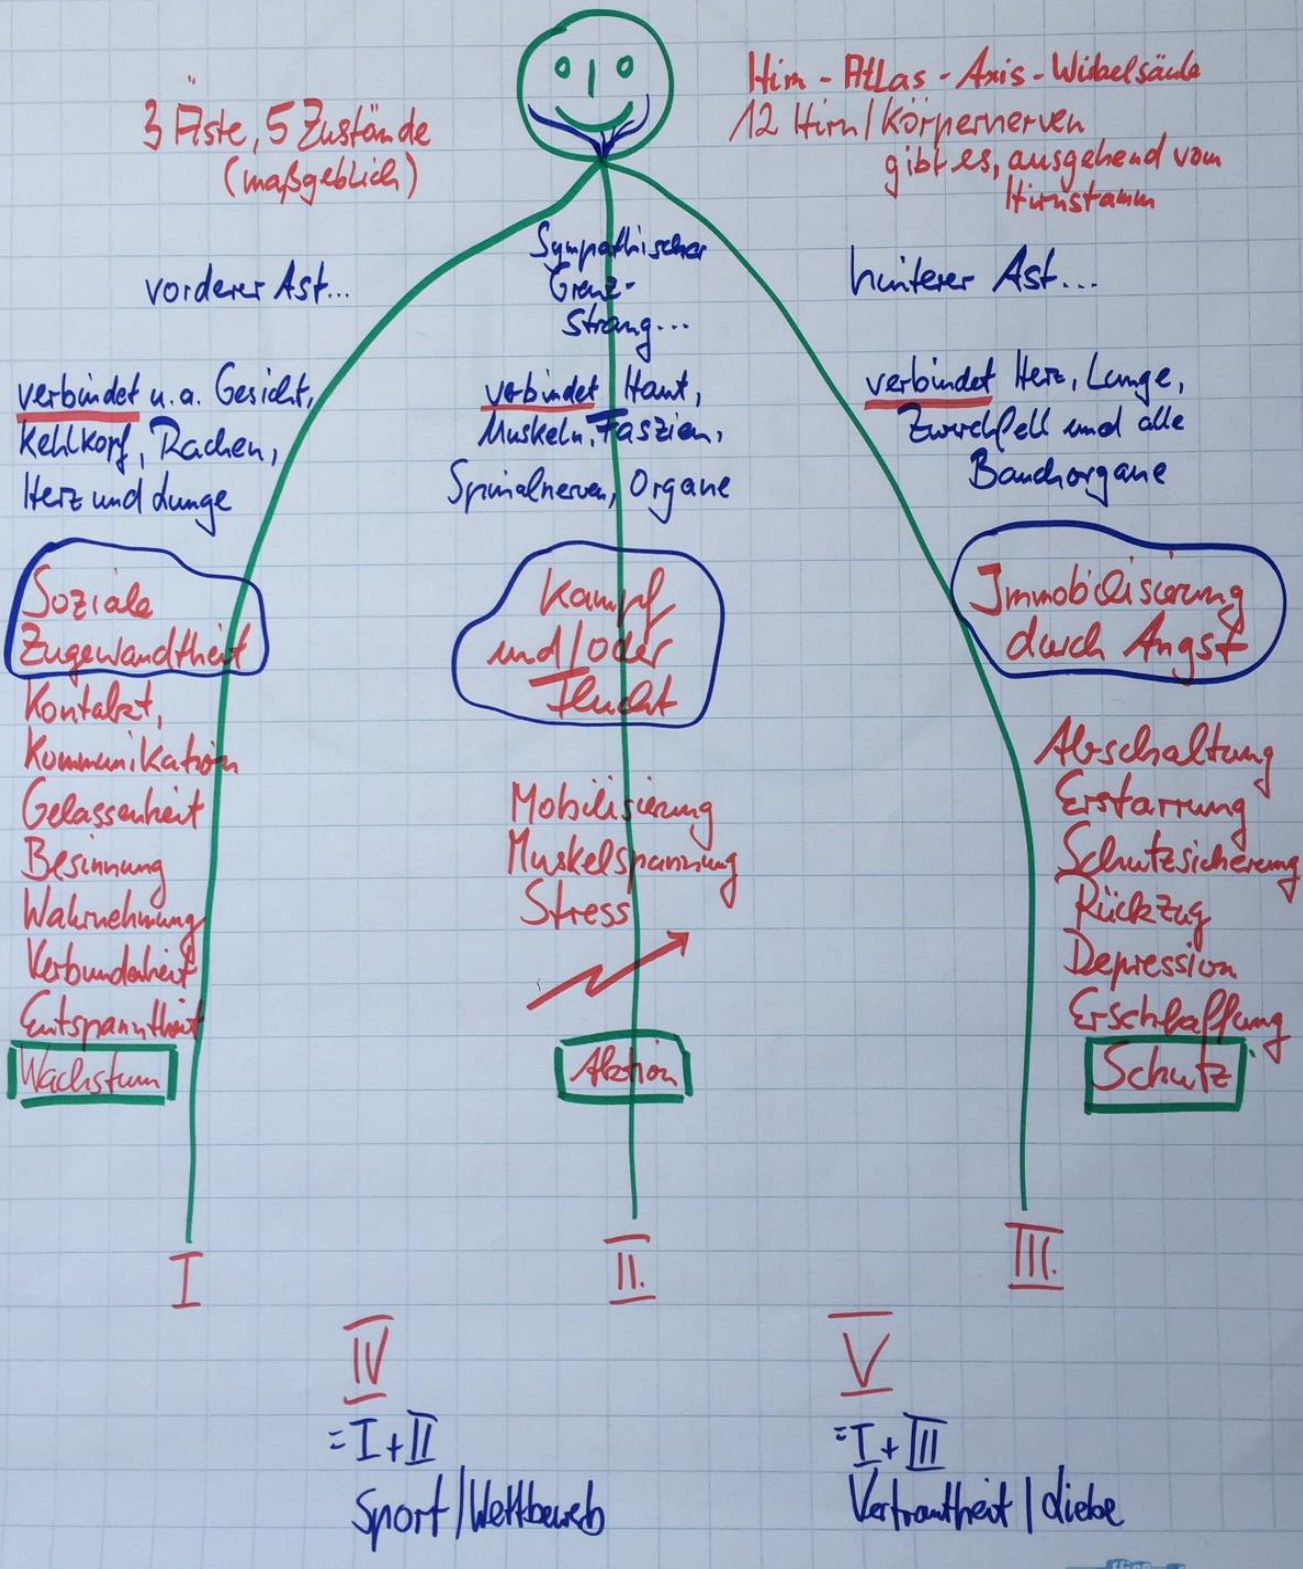 3 Äste, 5 Zustände
(maßgeblich)
Hirn - Atlas - Axis - Wirbelsäule
12 Hirn/Körpernerven
gibt es, ausgehend vom
Hirnstamm
vorderer Ast...
verbindet u.a. Gesicht,
Kehlkopf, Rachen,
Herz und Lunge
Soziale
Zugewandtheit
Kontakt,
Kommunikation
Gelassenheit
Besinnung
Wahrnehmung
Verbundenheit
Entspanntheit
Wachstum
I
Sympathischer
Grenz-
strang...
verbindet Haut,
Muskeln, Faszien,
Spinalnerven, Organe
Kampf
und/oder
Flucht
Mobilisierung
Muskelspannung
Stress
Aktion
II.
hinterer Ast...
verbindet Herz, Lunge,
Zwerchfell und alle
Bauchorgane
Immobilisierung
durch Angst
Abschaltung
Erstarrung
Schutzsicherung
Rückzug
Depression
Erschlaffung
Schutz
III.
IV
= I + II
Sport/Wettbewerb
V
= I + III
Vertrautheit / Liebe